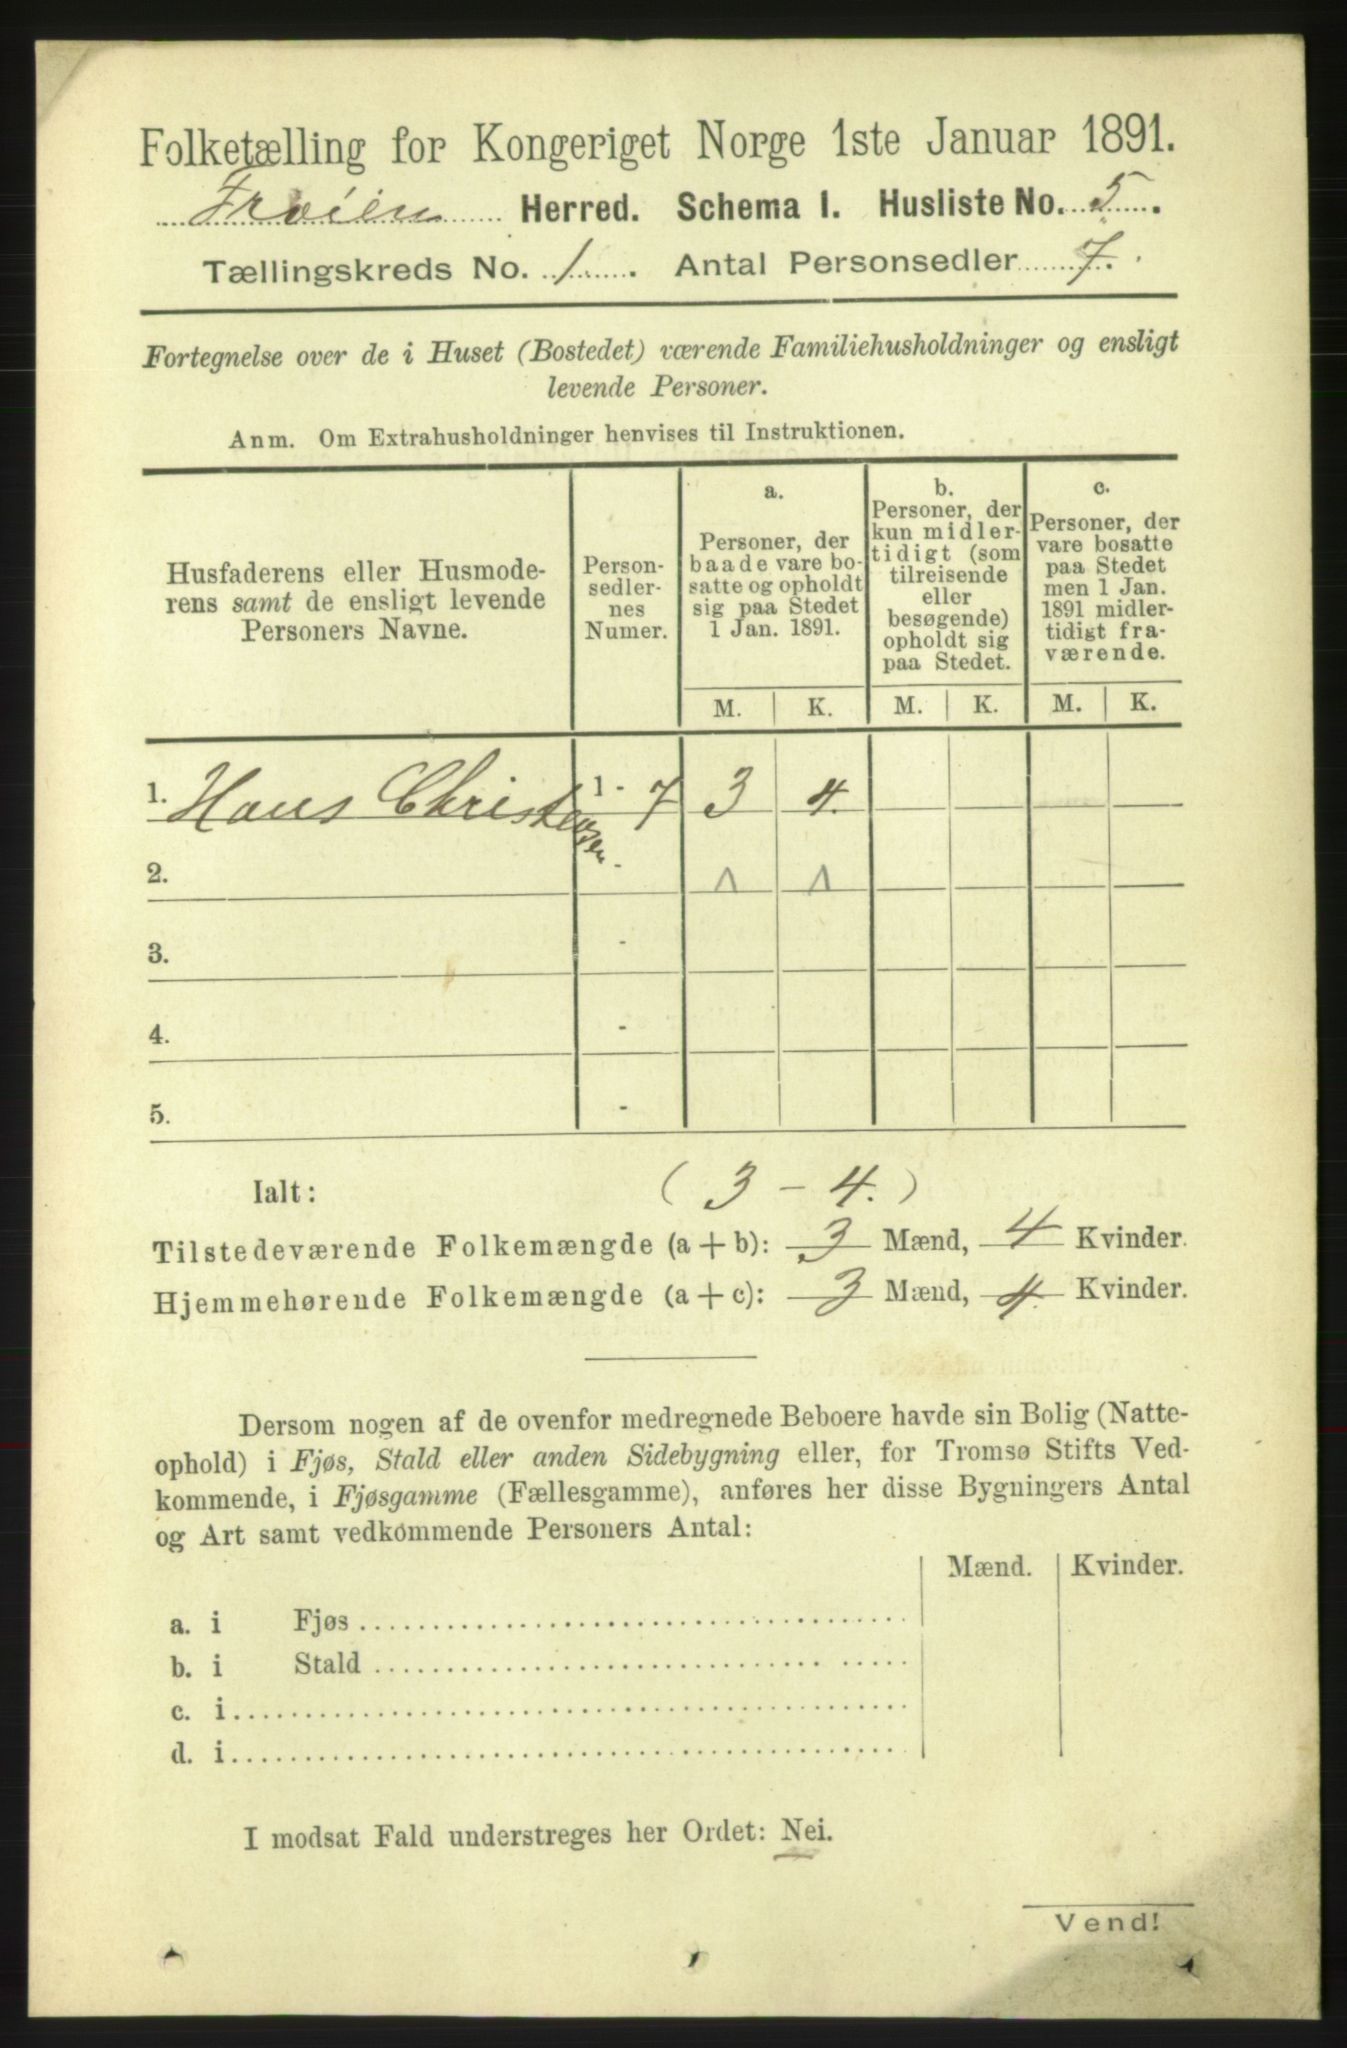 Folketælling for Kongeriget Norge 1ste Januar 1891.
Frøien Herred. Schema 1. Husliste No. 5.
Tællingskreds No. 1. Antal Personsedler 7.
Fortegnelse over de i Huset (Bostedet) værende Familiehusholdninger og ensligt
levende Personer.
Anm. Om Extrahusholdninger henvises til Instruktionen.
Husfaderens eller Husmode-
rens samt de ensligt levende
Personers Navne.
Person-
sedler-
nes
Numer.
a.
Personer, der
baade vare bo-
satte og opholdt
sig paa Stedet
1 Jan. 1891.
b.
Personer, der
kun midler-
tidigt (som
tilreisende
eller
besøgende)
opholdt sig
paa Stedet.
c.
Personer, der
vare bosatte
paa Stedet
men 1 Jan.
1891 midler-
tidigt fra-
værende.
M. K. M. K. M. K.
1. Hans Christensen 1 - 7 3 4.
2. -
3. -
4. -
5. -
Ialt: (3 - 4.)
Tilstedeværende Folkemængde (a + b): 3 Mænd, 4 Kvinder.
Hjemmehørende Folkemængde (a + c): 3 Mænd, 4 Kvinder.
Dersom nogen af de ovenfor medregnede Beboere havde sin Bolig (Natte-
ophold) i Fjøs, Stald eller anden Sidebygning eller, for Tromsø Stifts Ved-
kommende, i Fjøsgamme (Fællesgamme), anføres her disse Bygningers Antal
og Art samt vedkommende Personers Antal:
Mænd. Kvinder.
a. i Fjøs
b. i Stald
c. i
d. i
I modsat Fald understreges her Ordet: Nei.
Vend!